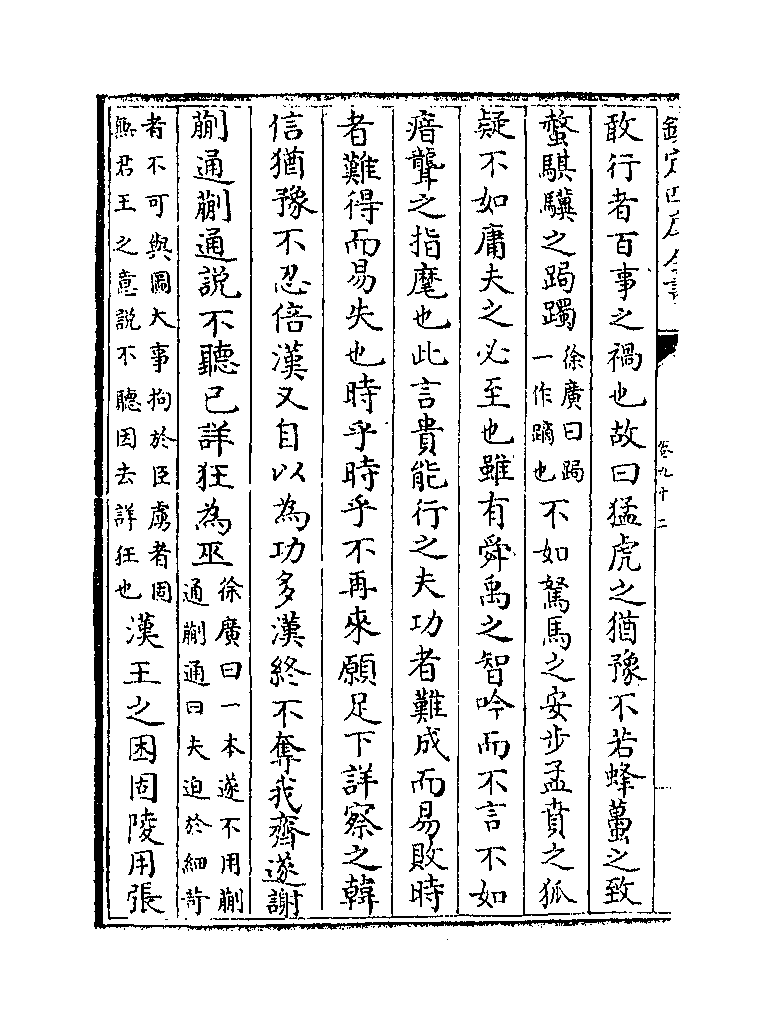 欽定四庫全書
卷九十二
敢行者百事之禍也故曰猛虎之猶豫不若蜂蠆之致
螫騏驥之跼躅徐廣曰跼一作蹢也不如駑馬之安步孟賁之狐
疑不如庸夫之必至也雖有舜禹之智吟而不言不如
瘖聾之指麾也此言貴能行之夫功者難成而易敗時
者難得而易失也時乎時乎不再來願足下詳察之韓
信猶豫不忍倍漢又自以為功多漢終不奪我齊遂謝
蒯通蒯通說不聽已詳狂為巫徐廣曰一本遂不用蒯通蒯通曰夫迫於細苛
者不可與圖大事拘於臣虜者固無君王之意說不聽因去詳狂也漢王之困固陵用張